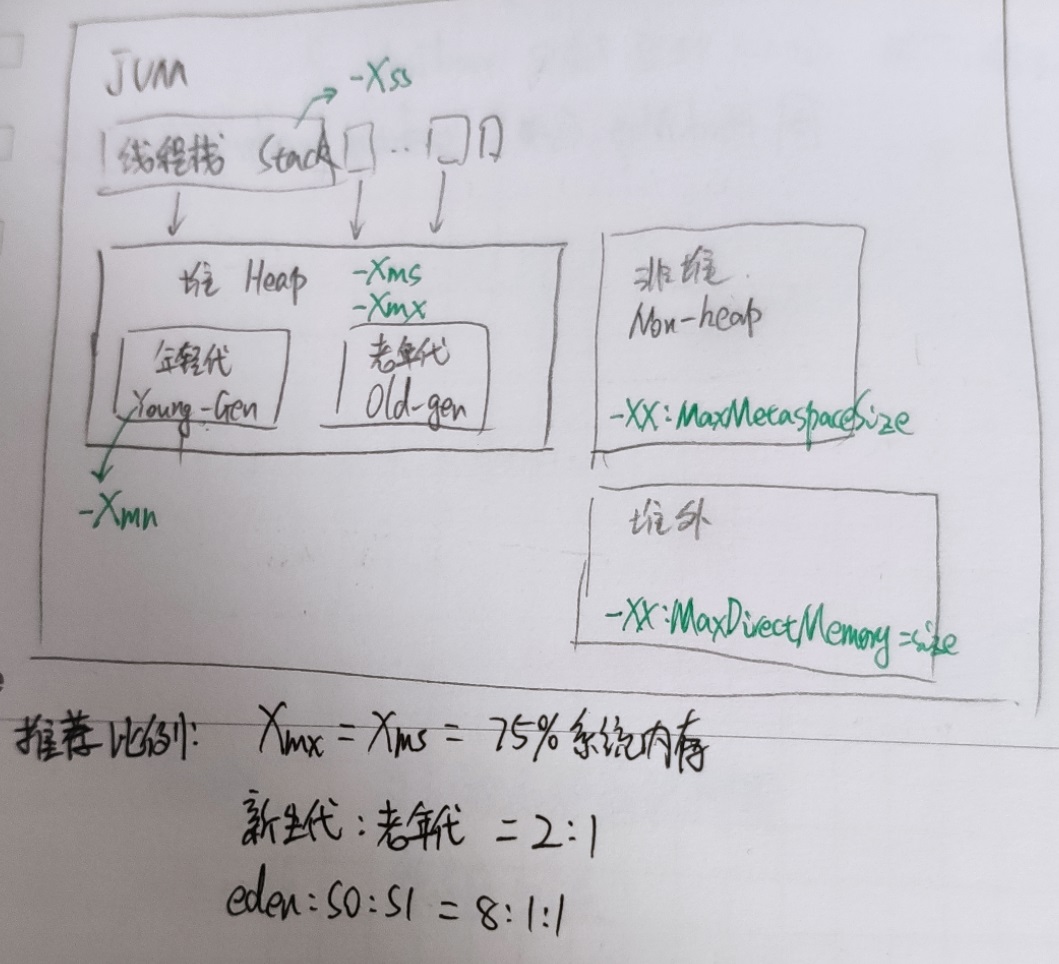 JVM
-Xss
线程栈 Stack ..
堆 Heap
-Xms
-Xmx
年轻代
Young-Gen
老年代
Old-gen
-Xmn
非堆
Non-heap
-XX:MaxMetaspaceSize
堆外
-XX:MaxDirectMemory=size
推荐比例: Xmx = Xms = 75%系统内存
新生代:老年代 = 2:1
eden:S0:S1 = 8:1:1